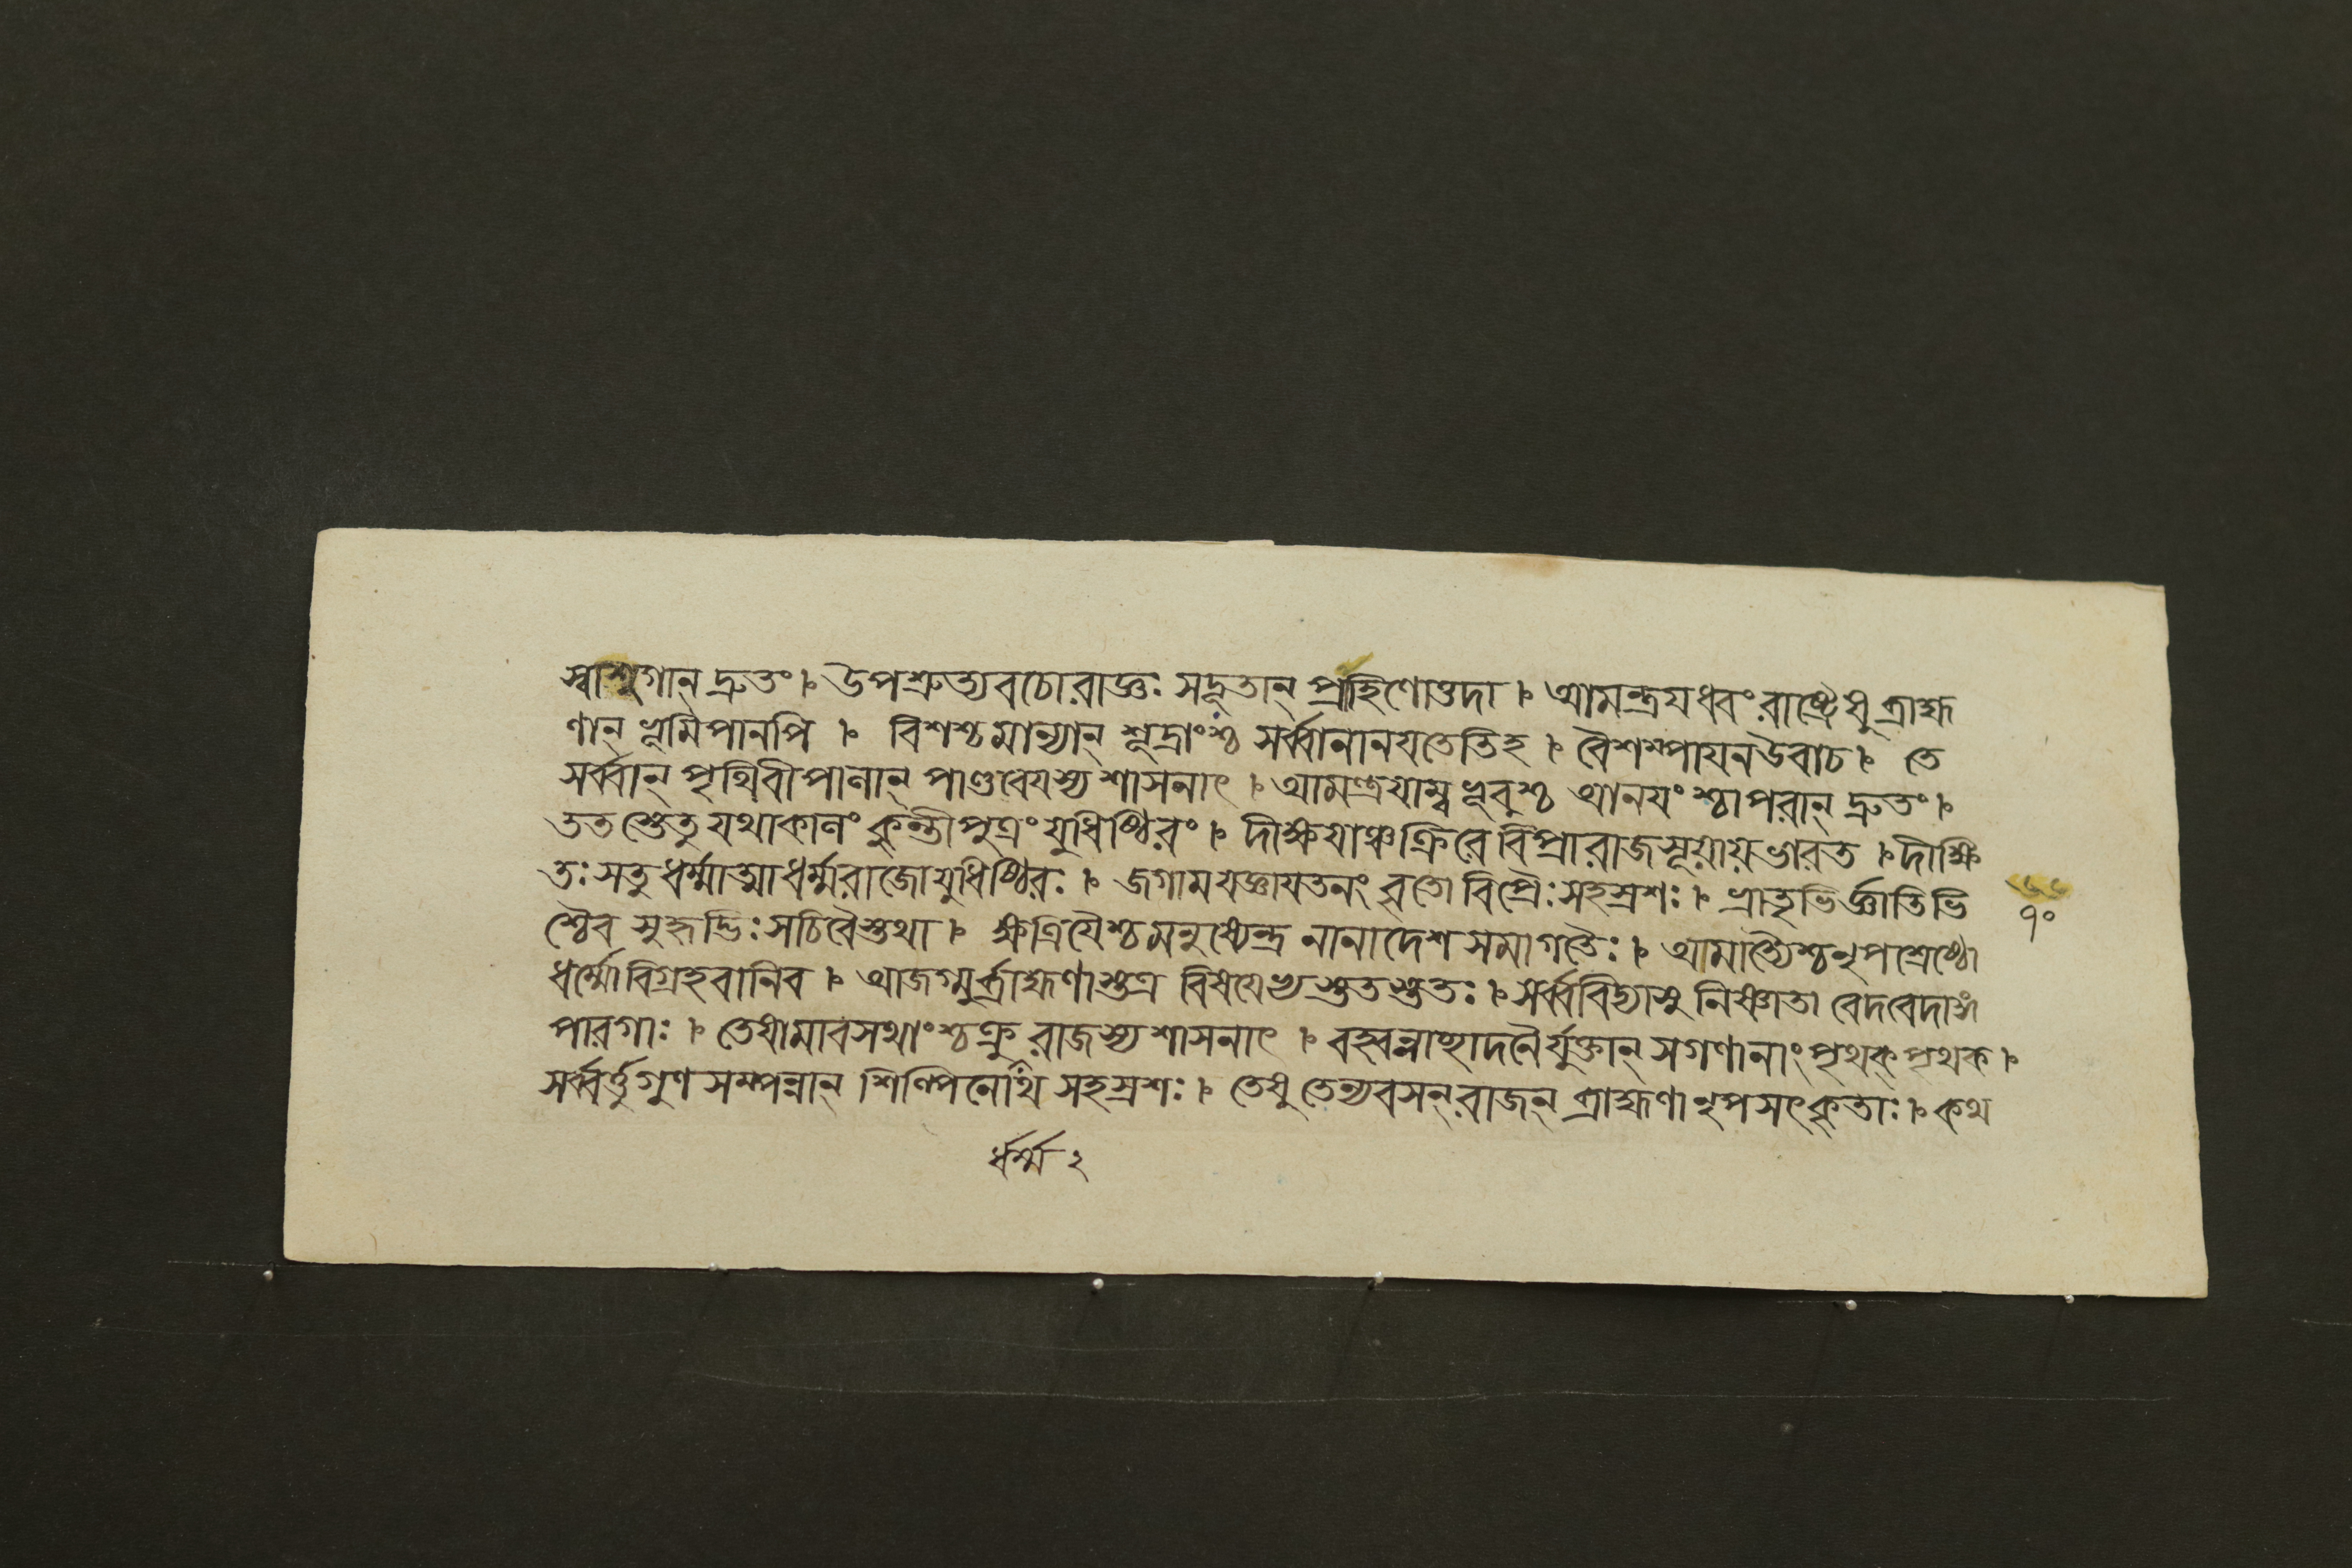 স্বাশুগান্ দ্রুতং । উপশ্রুত্যবচোরাজ্ঞঃ সদূতান্ প্রাহিণোত্তদা । আমন্ত্রযধ্বং রাষ্ট্রেষু ব্রাহ্ম
ণান্ ভূমিপানপি । বিশশ্চমান্যান্ শূদ্রাংশ্চ সর্ব্বানানযতেতিহ । বৈশম্পাযনউবাচ । তে
সর্ব্বান্ পৃথিবীপালান্ পাণ্ডবেযস্য শাসনাৎ । আমন্ত্রযাম্বভূবুশ্চ আনযংশ্চাপরান্ দ্রুতং ।
ততস্তেতু যথাকালং কুন্তীপুত্রং যুধিষ্ঠিরং । দীক্ষযাঞ্চক্রিরে বিপ্রা রাজসূয়ায়ভারত । দীক্ষি
তঃ সতু ধর্ম্মাত্মাধর্ম্মরাজো যুধিষ্ঠিরঃ । জগামযজ্ঞাযতনং বৃতো বিপ্রৈঃ সহস্রশঃ । ভ্রাতৃভির্জ্ঞাতিভি
শ্চৈব সুহৃদ্ভিঃ সচিবৈস্তথা । ক্ষত্রিযৈশ্চমনুষ্যেন্দ্র নানাদেশসমাগতৈঃ । আমাত্যৈশ্চনৃপশ্রেষ্ঠো
ধর্ম্মোবিগ্রহবানিব । আজগ্মুর্ব্রাহ্মণাস্তত্র বিষযেভ্যস্ততস্ততঃ । সর্ব্ববিদ্যাসু নিষ্ণাতা বেদবেদাঙ্গ
পারগাঃ । তেষামাবসথাংশ্চক্রু রাজস্যশাসনাৎ । বহ্বন্নাচ্ছাদনৈর্যুক্তান্ সগণানাং পৃথক্ পৃথক ।
সর্ব্বর্ত্তুগুণসম্পন্নান্ শিল্পিনোর্থ সহস্রশঃ । তেষু তেন্যবসন্ রাজন্ ব্রাহ্মণা নৃপসৎকৃতাঃ । কথ
১০
র্ধর্ম্ম ২